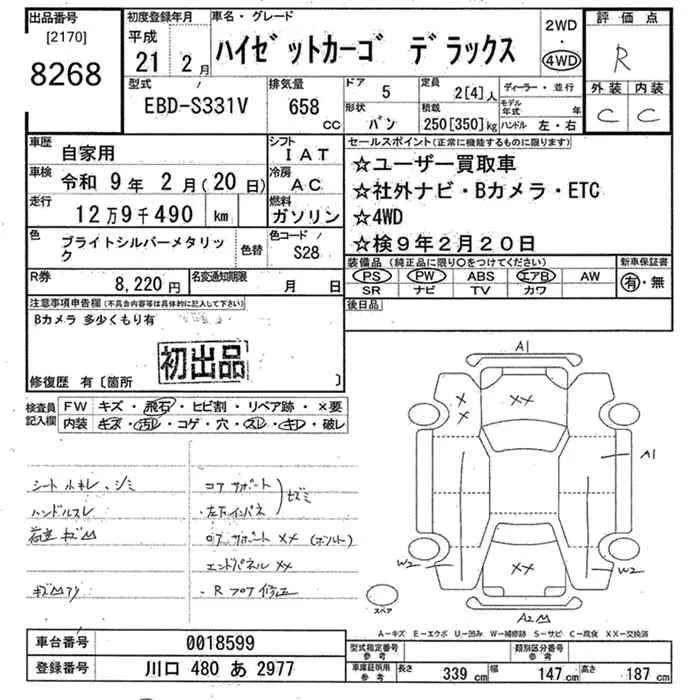 出品番号
[2170]
8268
初度登録年月
平成
21年 2月
車名・グレード
ハイゼットカーゴ デラックス
2WD
・
4WD
評価点
R
外装 内装
C C
型式
EBD-S331V
排気量
658
CC
ドア
5
定員
2[4]人
形状
バン
積載
250[350]kg
ディーラー・並行
モデル年式 年
ハンドル 左・右
車歴
自家用
シフト
IAT
車検
令和 9年 2月(20日)
冷房
AC
走行
12万9千490 km
燃料
ガソリン
色
ブライトシルバーメタリック
色替
色コード
S28
R券
8,220円
名変通知期限
月 日
セールスポイント(正常に機能するものに限ります)
☆ユーザー買取車
☆社外ナビ・Bカメラ・ETC
☆4WD
☆検9年2月20日
装備品(純正品に限り○をつけてください)
PS PW ABS エアB AW
SR ナビ TV カワ
新車保証書
有・無
後日品
注意事項申告欄(不具合内容等は具体的に記入して下さい)
Bカメラ 多少くもり有
初出品
修復歴 有〔箇所 〕
検査員記入欄
FW キズ・飛石・ヒビ割・リペア跡・×要
内装 キズ・汚れ・コゲ・穴・スレ・キレ・破レ
シート小キレ、シミ
ハンドルスレ
キズ凹アリ
コアサポート
左下インパネ
エンドパネル××
・Rフロア修正
A1
××
A1
W2
W2
××
A2凹
スペア
A−キズ E−エクボ U−凹み W−補修跡 S−サビ C−腐食 XX−交換済
車台番号
0018599
登録番号
川口 480 あ 2977
型式指定番号
参考
類別区分番号
参考
車庫証明用
参考
長さ 339 cm 幅 147 cm 高さ 187 cm